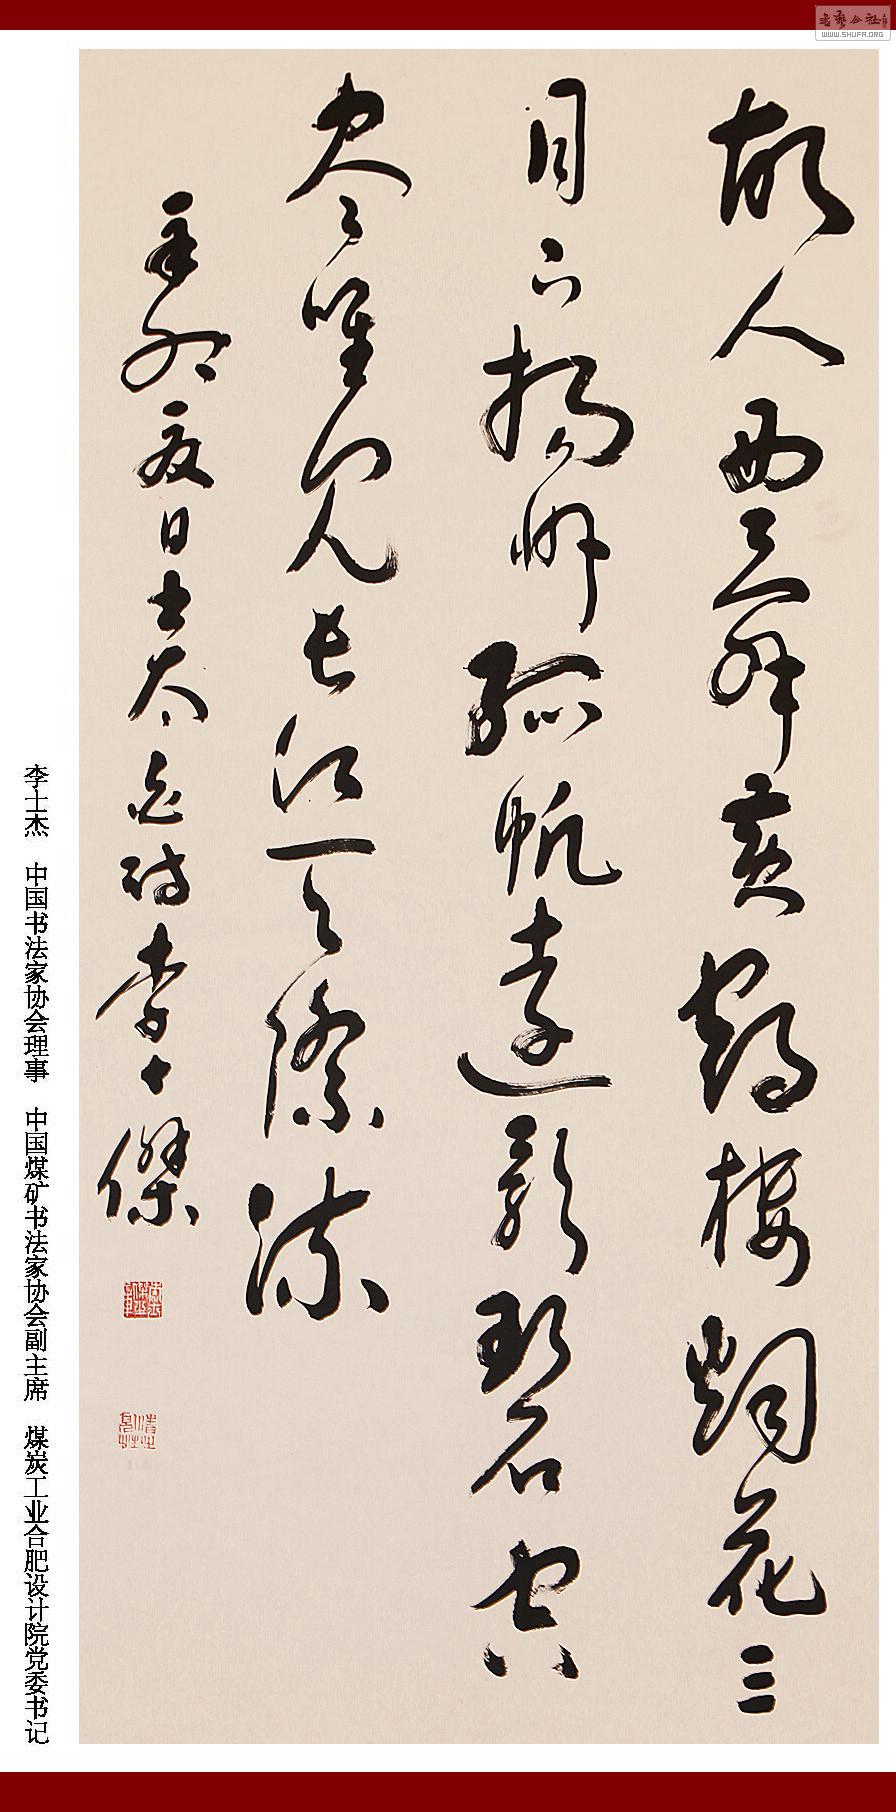 故人西辭黃鶴樓烟花三
月下揚州孤帆遠影碧空
尽唯見長江天際流
辛卯夏日書太白詩李士傑
李士杰 中国书法家协会理事 中国煤矿书法家协会副主席 煤炭工业合肥设计院党委书记
WWW.SHUFA.ORG